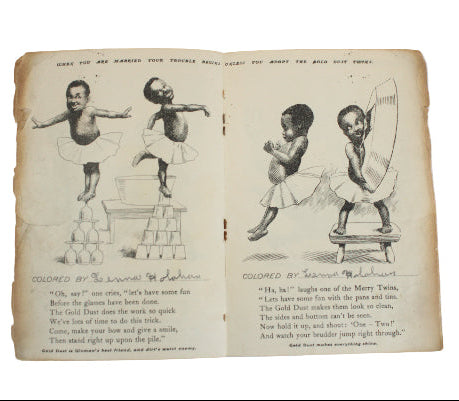 WHEN YOU ARE MARRIED YOUR TROUBLE BEGINS UNLESS YOU ADOPT THE GOLD DUST TWINS.
COLORED BY
"Oh, say!" one cries, "let's have some fun
Before the glasses have been done.
The Gold Dust does the work so quick
We've lots of time to do this trick.
Come, make your bow and give a smile,
Then stand right up upon the pile."
Gold Dust is Woman's best friend, and dirt's worst enemy.
COLORED BY
"Ha, ha!" laughs one of the Merry Twins,
"Lets have some fun with the pans and tins.
The Gold Dust makes them look so clean,
The sides and bottom can't be seen.
Now hold it up, and shout: 'One – Two!'
And watch your brudder jump right through."
Gold Dust makes everything shine.